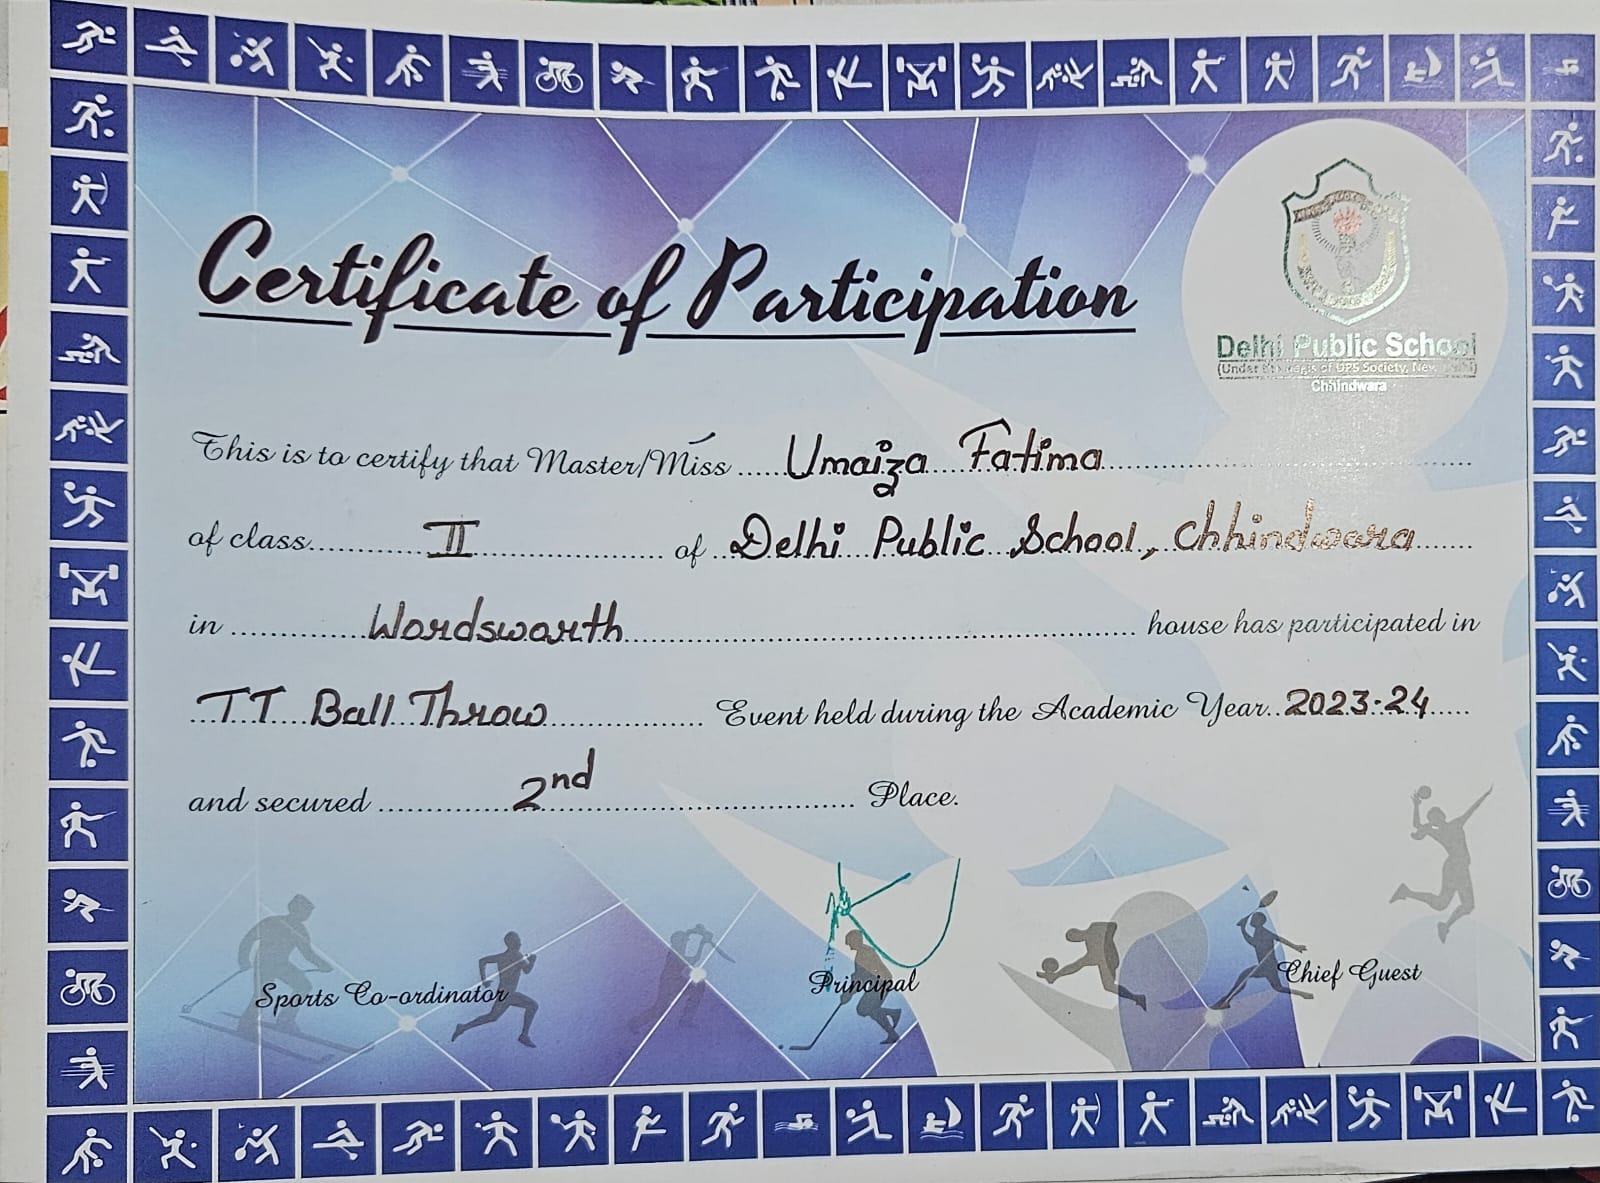 Certificate of Participation
Delhi Public School
(Under the Aegis of DPS Society, New Delhi)
Chhindwara
This is to certify that Master/Miss ..... Umaiza Fatima
of class ..... II ..... of Delhi Public School, Chhindwara
in ..... Wordsworth ..... house has participated in
TT Ball Throw ..... Event held during the Academic Year 2023-24
and secured ..... 2nd ..... Place.
Sports Co-ordinator
Principal
Chief Guest